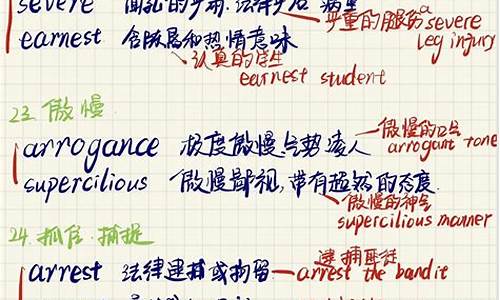 severe
严重的腿伤 a severe leg injury
earnest 含热情意味
认真的学生
earnest student
23. 傲慢
arrogance 极度傲慢,气势凌人
傲慢的口气
arrogant tone
supercilious 傲慢鄙视,带有超然的态度
傲慢的神气
supercilious manner
24. 抓住.捕捉
arrest 法律逮捕或拘留
逮捕匪徒
arrest the bandit